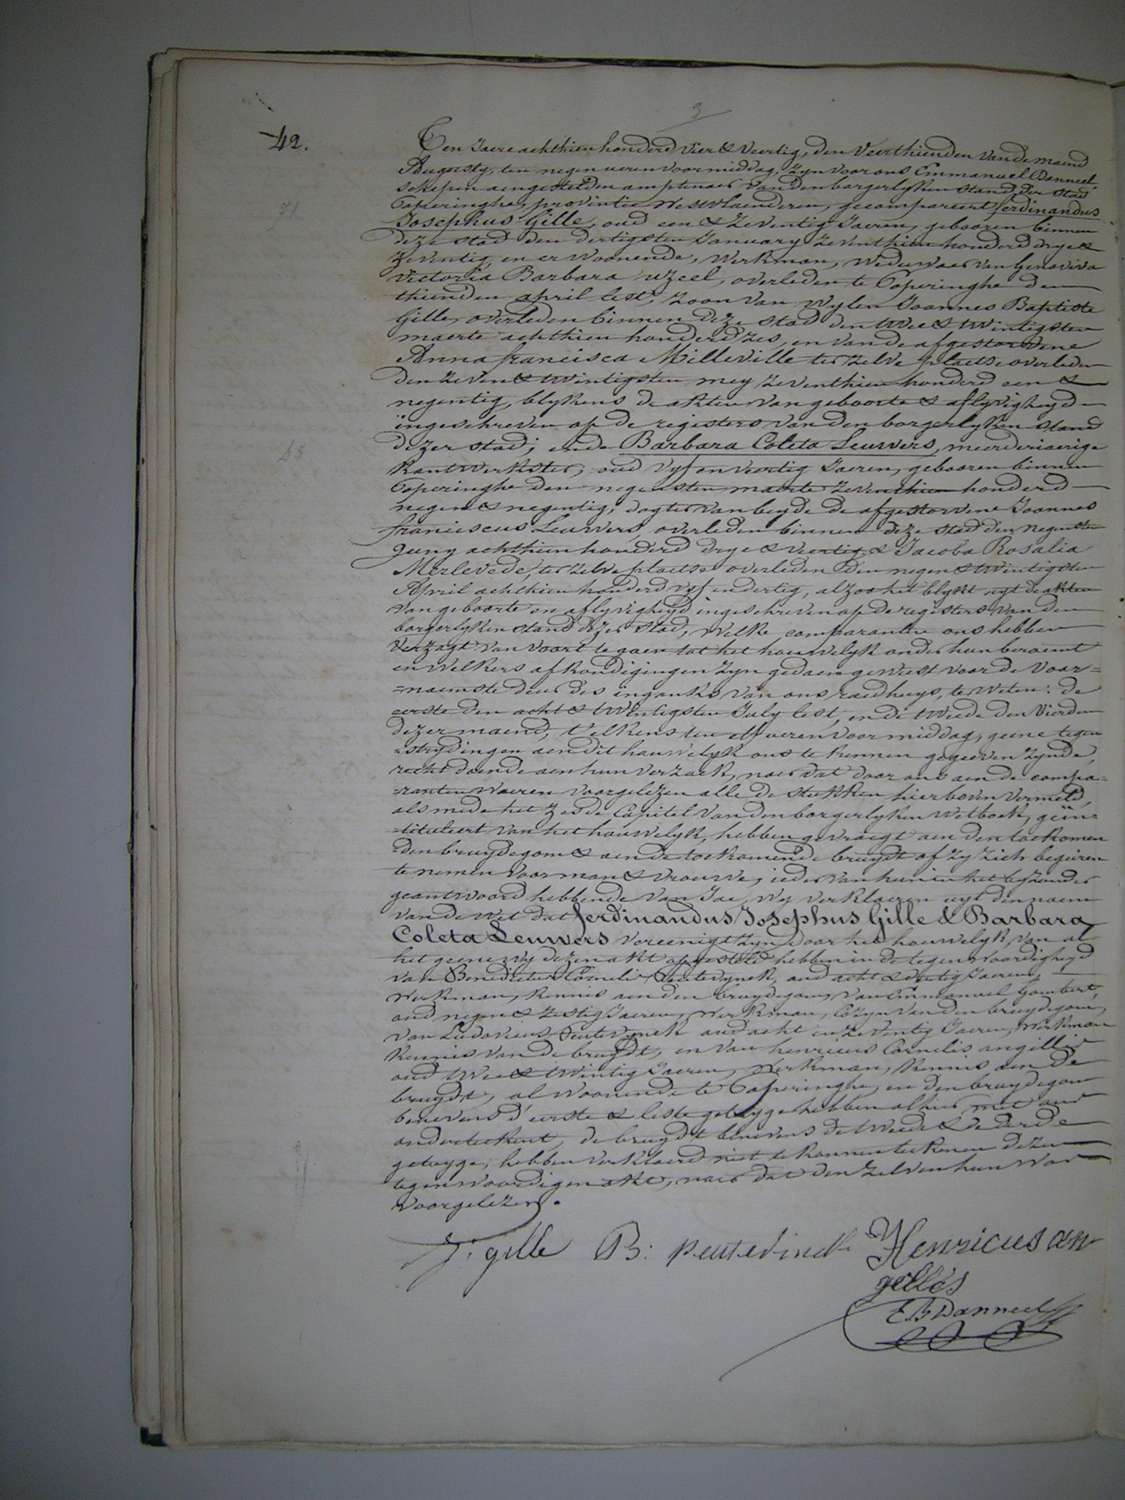 3
42.
Ten Jaere achthien honderd vier & veertig, den veerthienden van de maend
Augusty, ten negen uren voormiddag, zyn voor ons Emmanuel Danneel
schepen aengestelden amptenaer van den borgerlyken stand der stad
Poperinghe, provintie Westvlaenderen, gecompareert ferdinandus
Josephus Gille, oud een & zeventig Jaeren, gebooren binnen
deze stad den dertigsten January zeventhien honderd drye &
zeventig, en er woonende, werkman, weduwaer van Genoviva
Victoria Barbara uzeel, overleden te Poperinghe den
thienden april lest, zoon van wylen Joannes Baptiste
Gille, overleden binnen deze stad den twee & twintigsten
maerte achthien honderd zes, en van de afgestorvene
Anna francisca Milleville ter zelve plaetse overleden
den zeven & twintigsten mey zeventhien honderd een &
negentig, blykens de akten van geboorte & aflyvigheyd
ingeschreven op de registers van den borgerlyken stand
dezer stad; ende Barbara Coleta Leuwers, meerderjaerige
kantwerkster, oud vyf en veertig Jaeren, gebooren binnen
Poperinghe den negensten maerte zeventhien honderd
negen & negentig, dogter van beyde de afgestorvene Joannes
franciscus Leuwers, overleden binnen deze stad den negensten
Juny achthien honderd drye & veertig & Jacoba Rosalia
Merlevede, ter zelve plaetse overleden den negen & twintigsten
April achthien honderd vyf en dertig, alzoo het blykt uyt de akten
van geboorte en aflyvigheyd ingeschreven op de registers van den
borgerlyken stand dezer stad, welke comparanten ons hebben
verzogt van voort te gaen tot het houwelyk onder hun beraemt
en welkers afkondigingen zyn gedaen geweest voor de voor=
=naemste deur des ingank's van ons raedhuys, te weten: de
eerste den acht & twintigsten July lest, en de tweede den vierden
dezer maend, t'elkens ten elf uren voormiddag, geene tegen
strydingen aen dit houwelyk ons te kennen gegeven zynde,
recht doende aen hun verzoek, naer dat door ons aen de compa=
=ranten waeren voorgelezen alle de stukken hierboven vermeld,
als mede het zesde Capitel van den borgerlyken Wetboek, geïn=
=tituleert van het houwelyk, hebben gevraegt aen den toekomen
den bruydegom & aen de toekomende bruydt of zy zich begeiren
te nemen voor man & vrouwe; ieder van hun in het byzonder
geantwoord hebbende van Jae, wy verklaeren uyt den naem
van de Wet dat ferdinandus Josephus Gille & Barbara
Coleta Leuwers vereenigt zyn door het houwelyk, van al
het geene wy dezen akt opgesteld hebben in de tegenwoordigheyd
van Benedictus Cornelis Peutevynck, oud acht & veertig Jaeren,
werkman, kennis aen den bruydegom, van Emmanuel Gombert,
oud negen & zestig Jaeren, werkman, Cozyn van den bruydegom,
van Ludovicus Peutevynck oud acht en zeventig Jaeren, Werkman
kennis van de bruydt, en van henricus Cornelis angillis
oud twee & twintig Jaeren, werkman, kennis aen de
bruydt, al woonende te Poperinghe, en den bruydegom
benevens d'eerste & leste getuyge hebben alhier met ons
onderteekent, de bruydt benevens de tweede & derde
getuyge, hebben verklaerd niet te konnen teekenen dezen
tegenwoordigen akt, naer dat den zelven hun was
voorgelezen.
f. gille B: peutevinck Henricus an
gillis
E. B Danneel